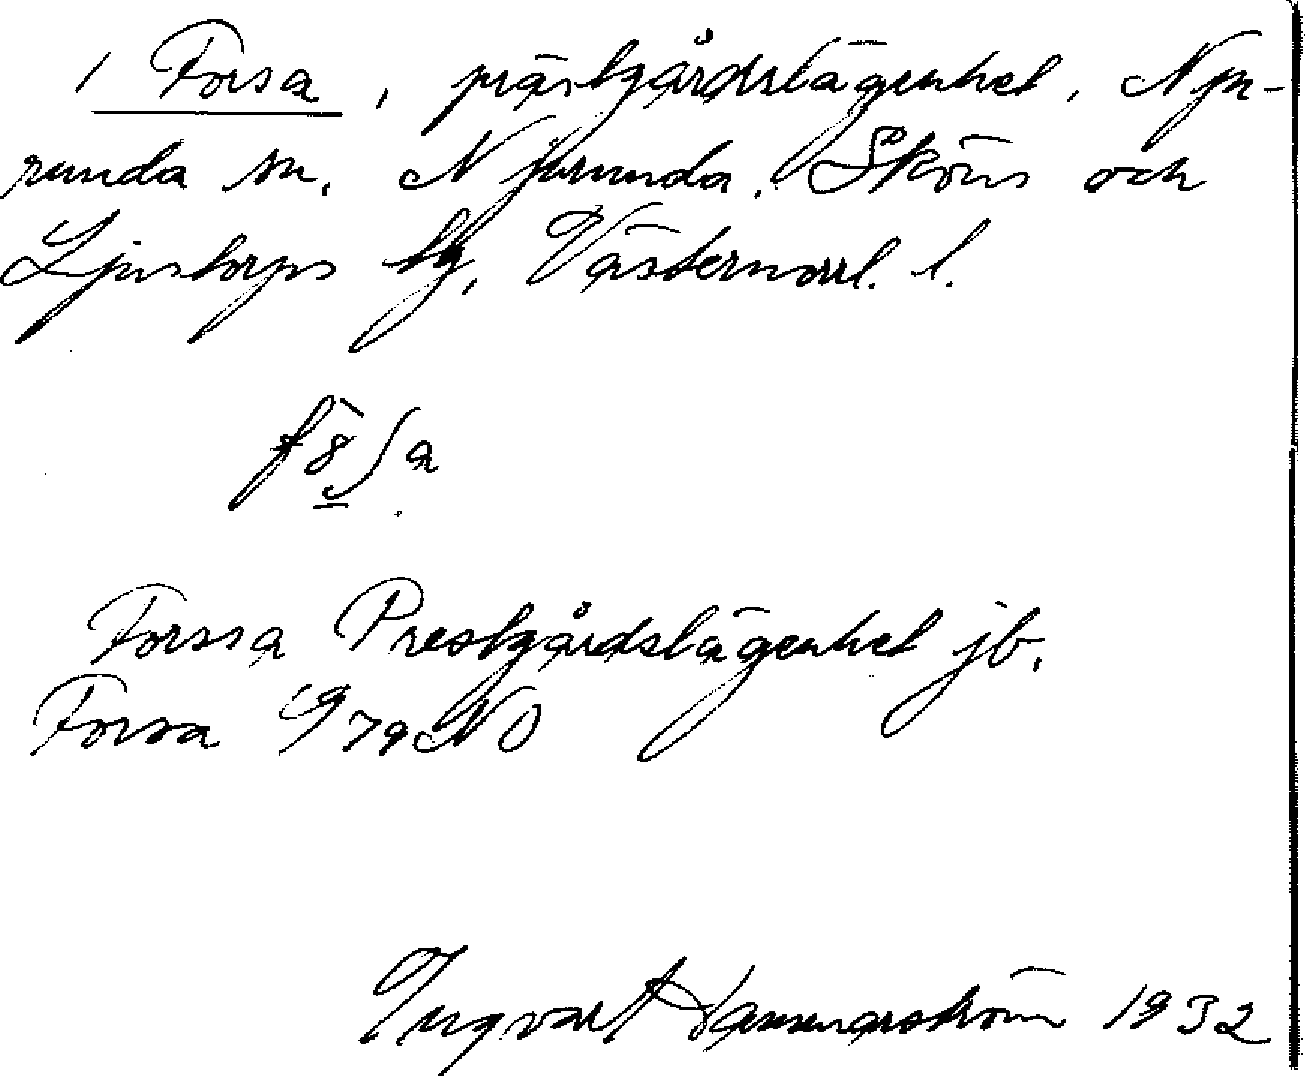 1 Forsa, prästgårdslägenhet, Nju-
runda sn. Njurunda, Sköns och
Ljustorps tg, Västernorrl. l.
Forssa Prestgårdslägenhet jb.
Forsa 79 NO
Ingvart Hammarström 1932